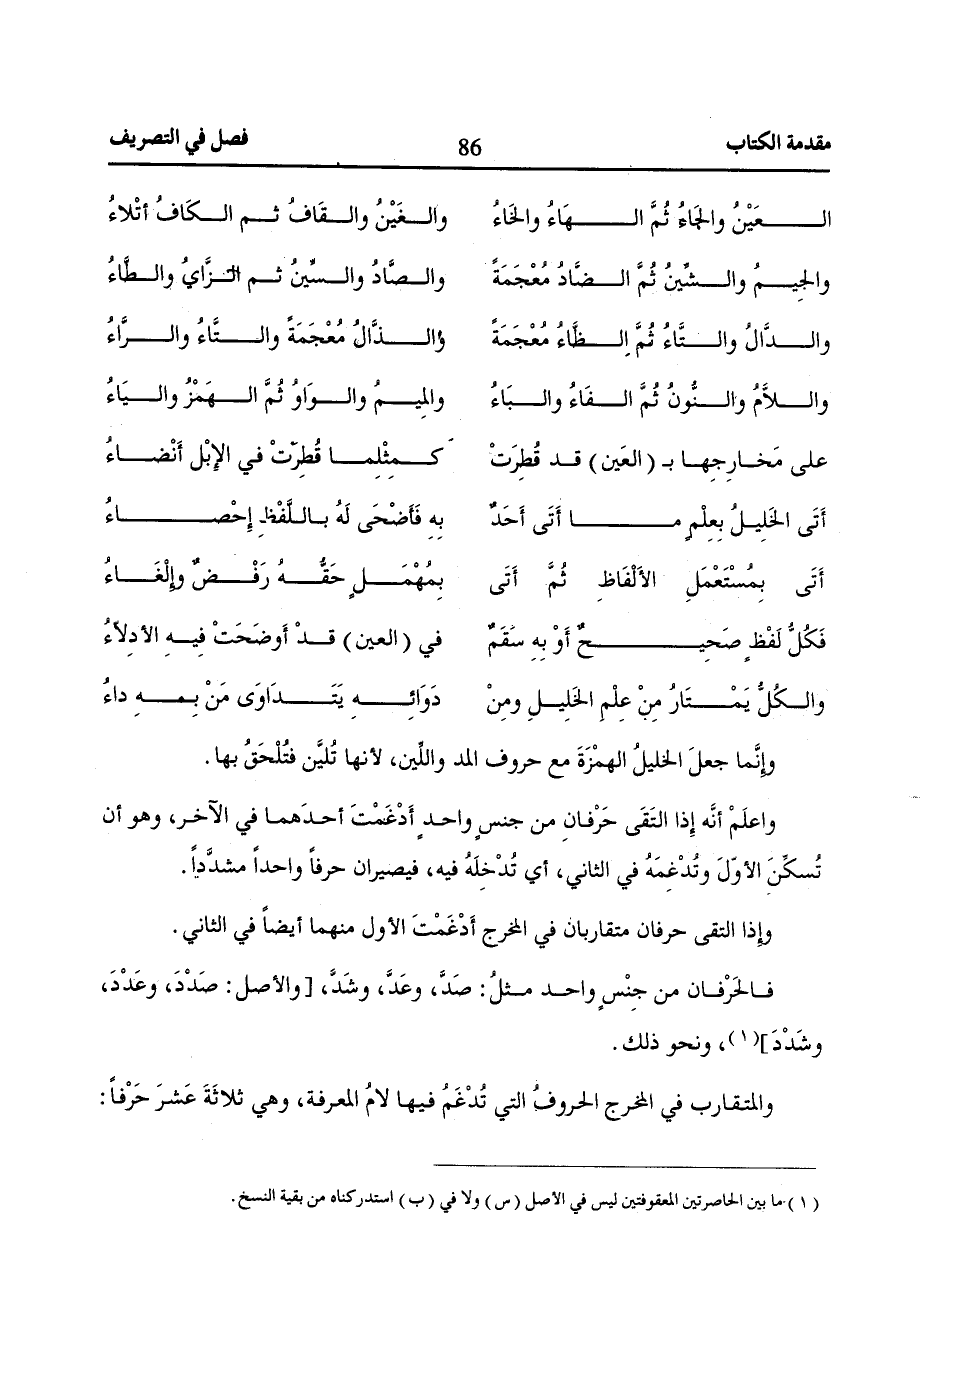 مقدمة الكتاب 86 فصل في التصريف
العَيْنُ والحَاءُ ثُمَّ الهَاءُ والخَاءُ والغَيْنُ والقَافُ ثم الكَافُ أتْلاءُ
والجيمُ والشِّينُ ثُمَّ الضَّادُ مُعْجَمَةً والصَّادُ والسِّينُ ثم الزَّايُ والطَّاءُ
والدَّالُ والتَّاءُ ثُمَّ الظَّاءُ مُعْجَمَةً والذَّالُ مُعْجَمَةً والثَّاءُ والرَّاءُ
واللاَّمُ والنُّونُ ثُمَّ الفَاءُ والبَاءُ والميمُ والوَاوُ ثُمَّ الهَمْزُ واليَاءُ
على مَخارجها بـ (العَين) قد قُطِرَتْ كمثْلِما قُطِرَتْ في الإبْلِ أنْضَاءُ
أتَى الخَليلُ بعِلْمٍ مَا أتَى أحَدٌ به فَأضْحَى لَهُ باللَّفْظِ إحْصَاءُ
أتَى بمُسْتَعْمَلِ الألْفَاظِ ثُمَّ أتَى بمُهْمَلٍ حَقُّهُ رَفْضٌ وإلْغَاءُ
فَكُلُّ لَفْظٍ صَحيحٌ أوْ بِهِ سَقَمٌ في (العين) قَدْ أوضَحَتْ فيهِ الأدِلاَّءُ
والكُلُّ يَمْتَارُ مِنْ عِلْمِ الخَليلِ ومِنْ دَوَائِهِ يَتَدَاوَى مَنْ بِهِ داءُ
وإنَّما جعلَ الخليلُ الهَمْزَةَ مع حروف المد واللِّين، لأنها تُلَيَّن فَتُلْحَقُ بها.
واعلَمْ أنَّه إذا التَقَى حَرْفانِ من جنسٍ واحدٍ أدْغَمْتَ أحدَهما في الآخر، وهو أن
تُسكِّنَ الأوّلَ وتُدْغِمَهُ في الثاني، أي تُدْخِلَهُ فيه، فيصيران حرفاً واحداً مشدَّداً.
وإذا التقى حرفان متقاربان في المخرج أدْغَمْتَ الأول منهما أيضاً في الثاني.
فالحَرْفان من جنْسٍ واحد مثلُ: صَدَّ، وعَدَّ، وشَدَّ، [والأصل: صَدْدَ، وعَدْدَ،
وشَدْدَ](١)، ونحو ذلك.
والمتقارب في المخرج الحروفُ التي تُدْغَمُ فيها لامُ المعرفة، وهي ثلاثَةَ عَشَرَ حَرْفاً:
(١) ما بين الحاصرتين المعقوفتين ليس في الأصل (س) ولا في (ب) استدركناه من بقية النسخ.